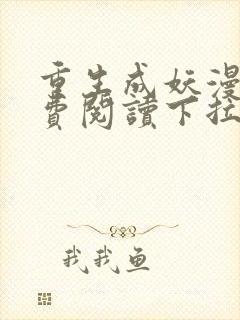 重生成妖漫
費閱讀下拉
我我鱼